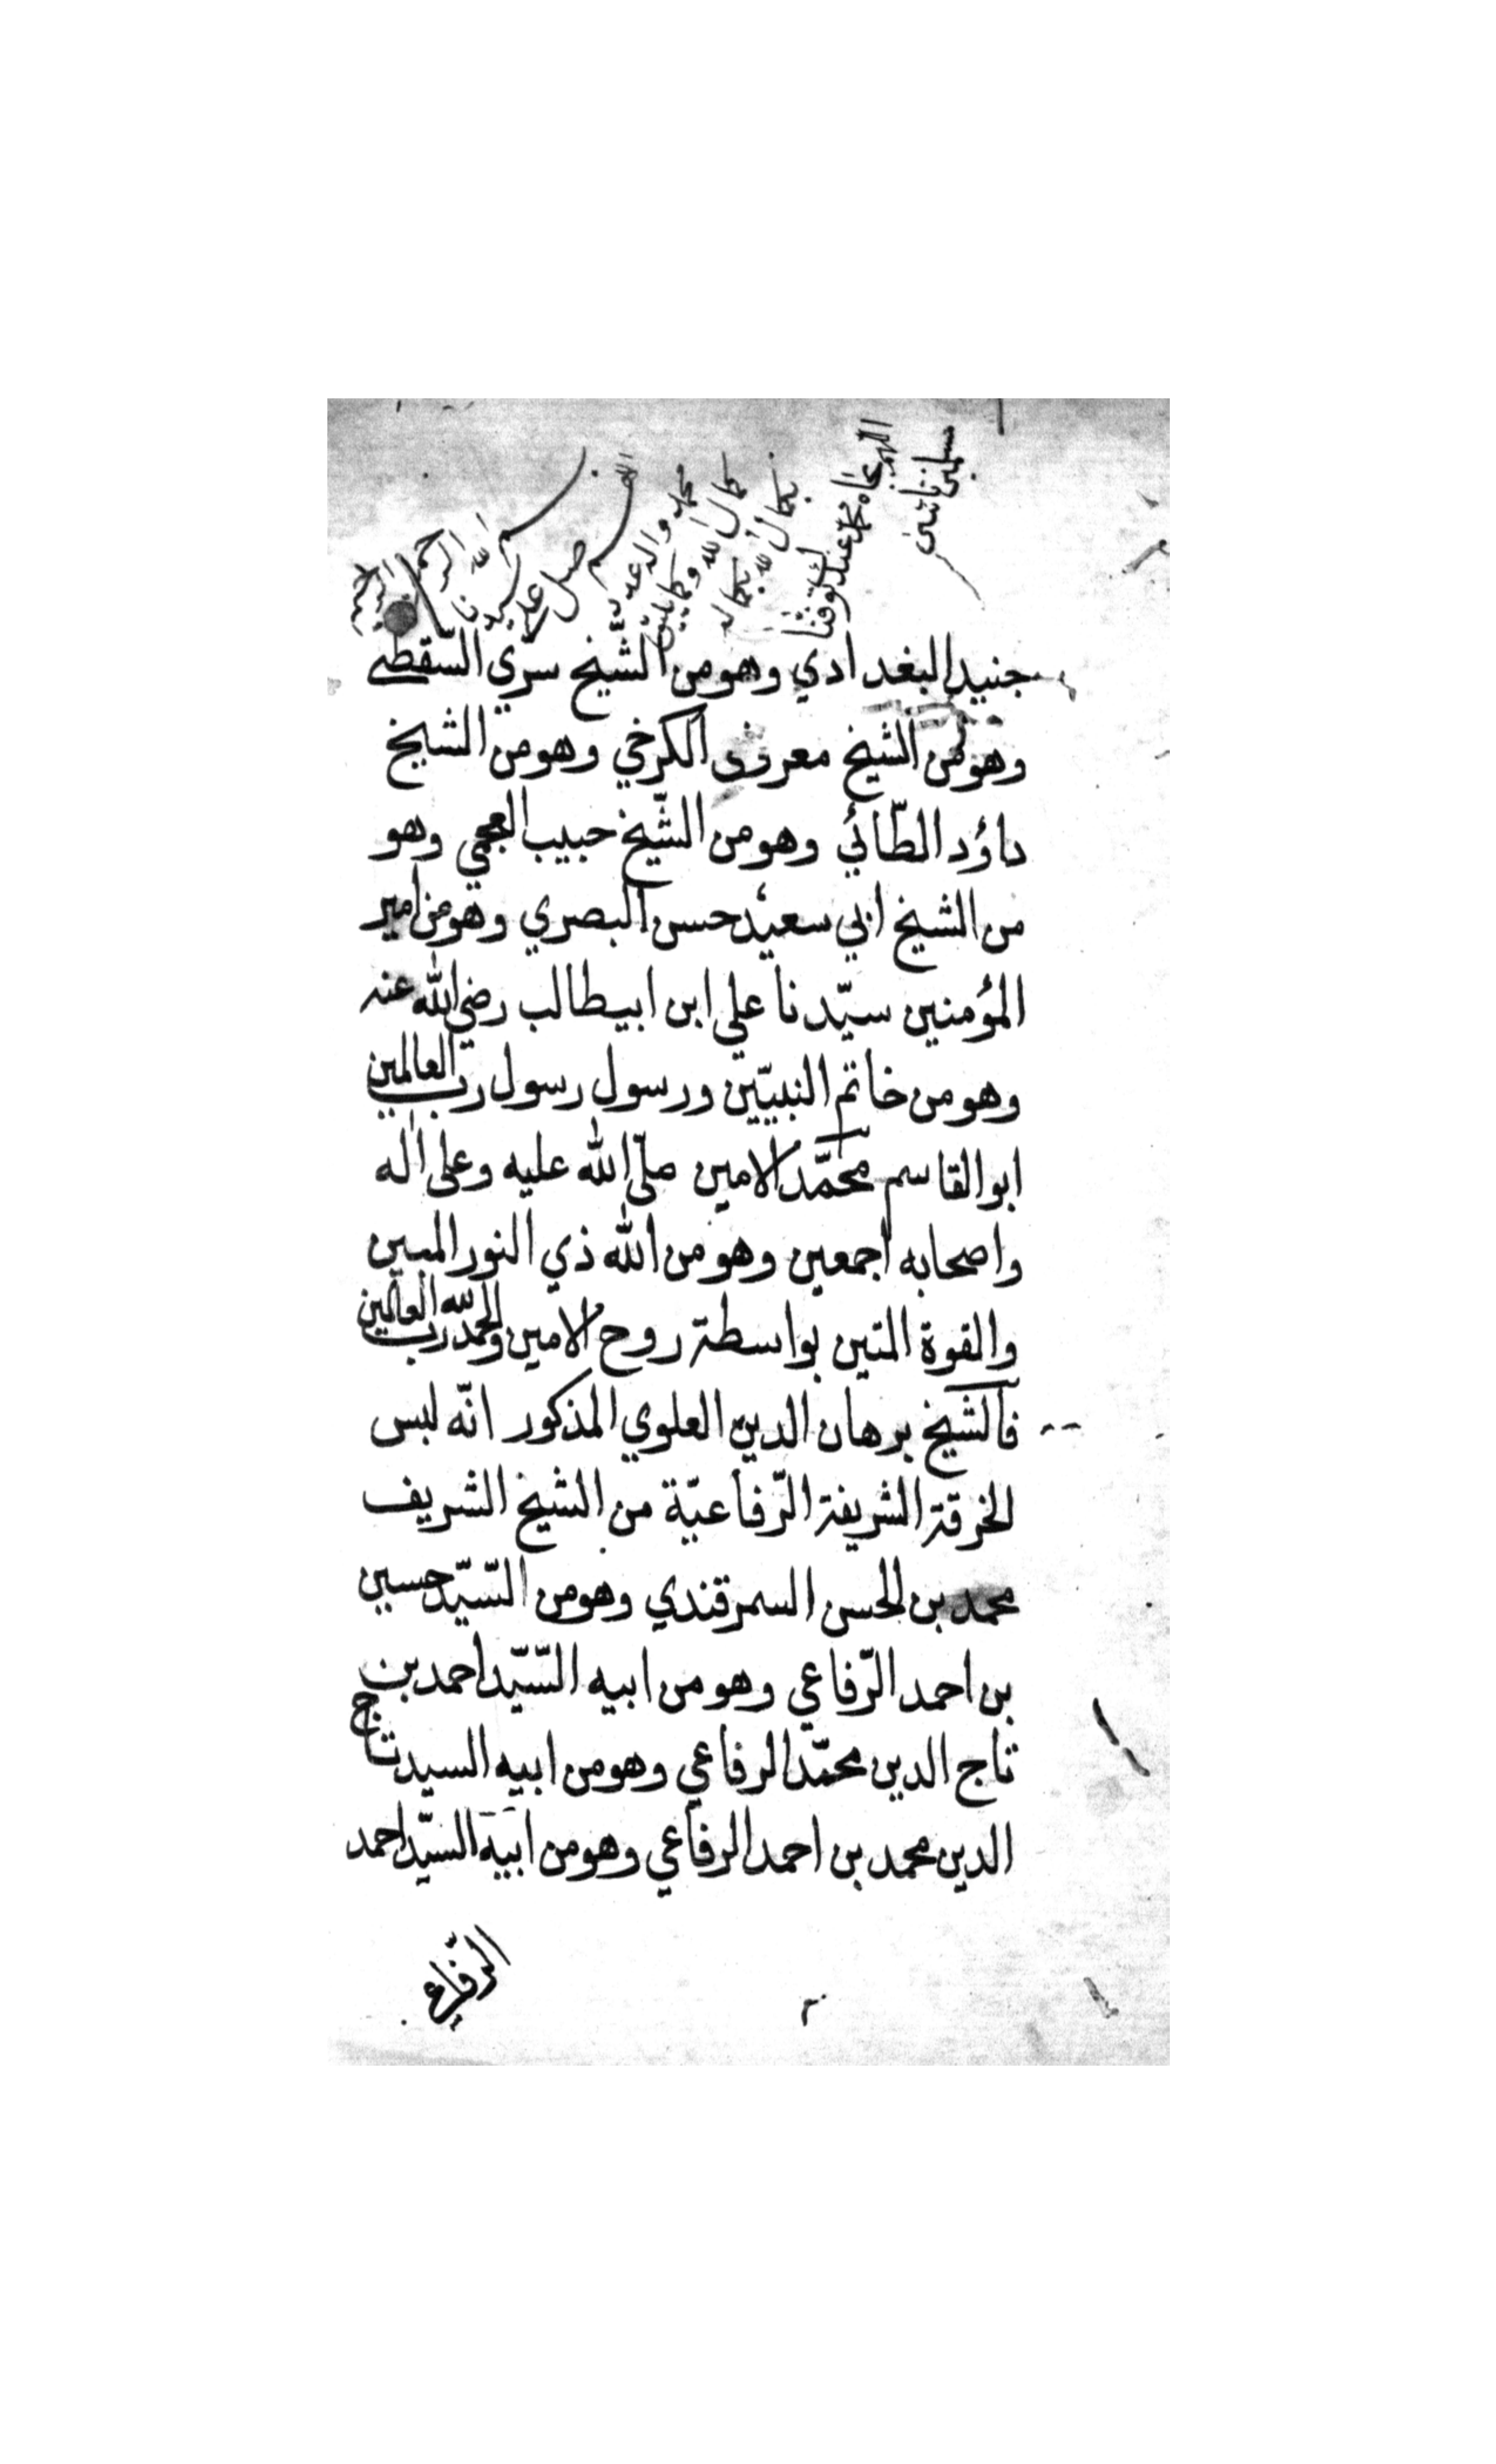 بسم
الله
الرحمن
الرحيم
اللهم
صل
على
سيدنا
محمد واله عدد
كمال الله وكما يليق
بكمال الله بكماله
اللهم بجاه محمد عندك توفنا
مسلمين
جنيد البغدادي وهو من الشّيخ سرّي السّقطي
وهو من الشيخ معروف الكرخي وهو من الشيخ
داؤد الطّائي وهو من الشّيخ حبيب العجمي وهو
من الشيخ ابي سعيد حسن البصري وهو من امير
المؤمنين سيّدنا علي ابن ابيطالب رضي الله عنه
وهو من خاتم النبيّين ورسول رسول رب العالمين
ابو القاسم محمّد الامين صلّى الله عليه وعلى اله
واصحابه اجمعين وهو من الله ذي النور المبين
والقوة المتين بواسطة روح الامين والحمد لله رب العالمين
فالشيخ برهان الدين العلوي المذكور انّه لبس
الخرقة الشريفة الرّفاعيّة من الشيخ الشريف
محمد بن الحسن السمرقندي وهو من السّيّد حسين
بن احمد الرّفاعي وهو من ابيه السّيّد احمد بن
تاج الدين محمّد الرفاعي وهو من ابيه السيد تاج
الدين محمد بن احمد الرفاعي وهو من ابيه السيّد احمد
الرّفاعي